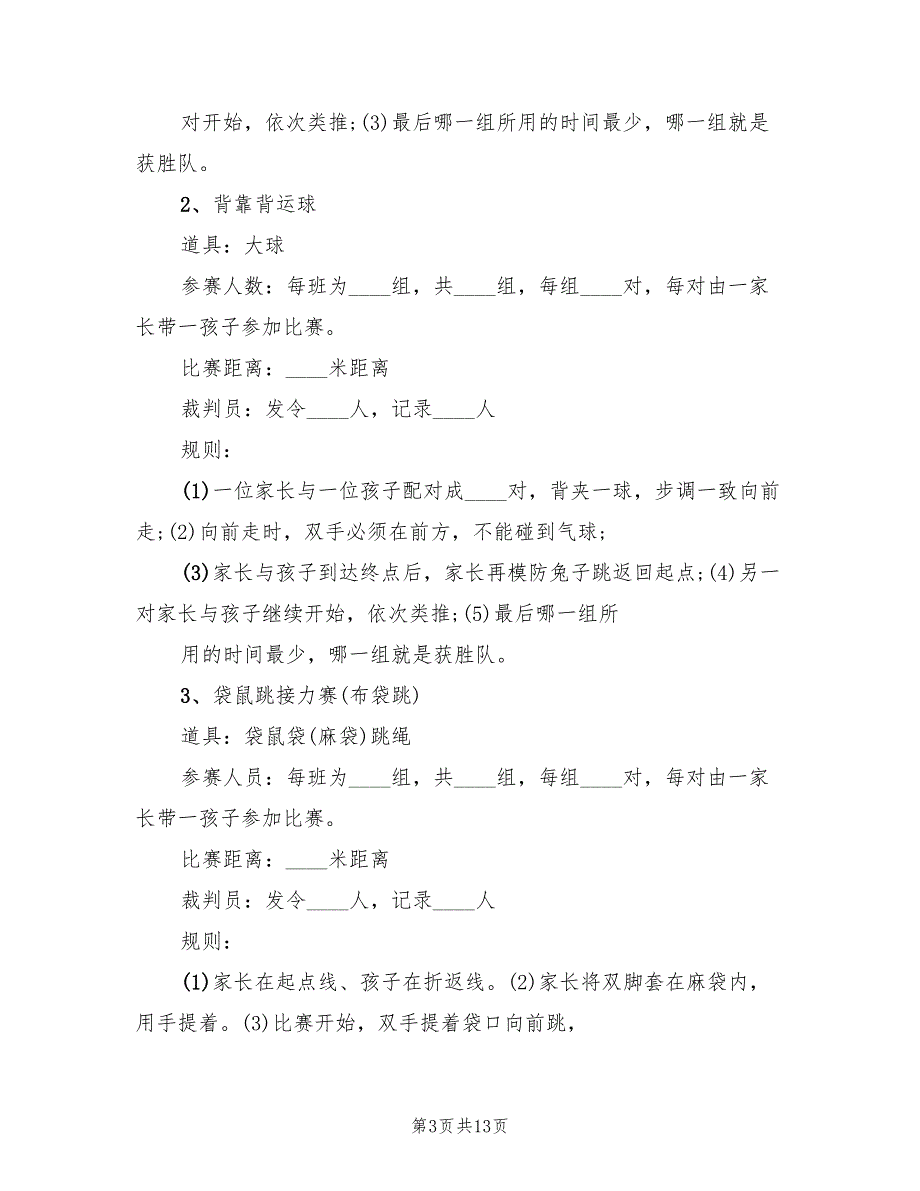 对开始，依次类推;(3)最后哪一组所用的时间最少，哪一组就是
获胜队。
2、背靠背运球
道具：大球
参赛人数：每班为____组，共____组，每组____对，每对由一家
长带一孩子参加比赛。
比赛距离：____米距离
裁判员：发令____人，记录____人
规则：
(1)一位家长与一位孩子配对成____对，背夹一球，步调一致向前
走;(2)向前走时，双手必须在前方，不能碰到气球;
(3)家长与孩子到达终点后，家长再模防兔子跳返回起点;(4)另一
对家长与孩子继续开始，依次类推;(5)最后哪一组所
用的时间最少，哪一组就是获胜队。
3、袋鼠跳接力赛(布袋跳)
道具：袋鼠袋(麻袋)跳绳
参赛人员：每班为____组，共____组，每组____对，每对由一家
长带一孩子参加比赛。
比赛距离：____米距离
裁判员：发令____人，记录____人
规则：
(1)家长在起点线、孩子在折返线。(2)家长将双脚套在麻袋内，
用手提着。(3)比赛开始，双手提着袋口向前跳，
第3页共13页